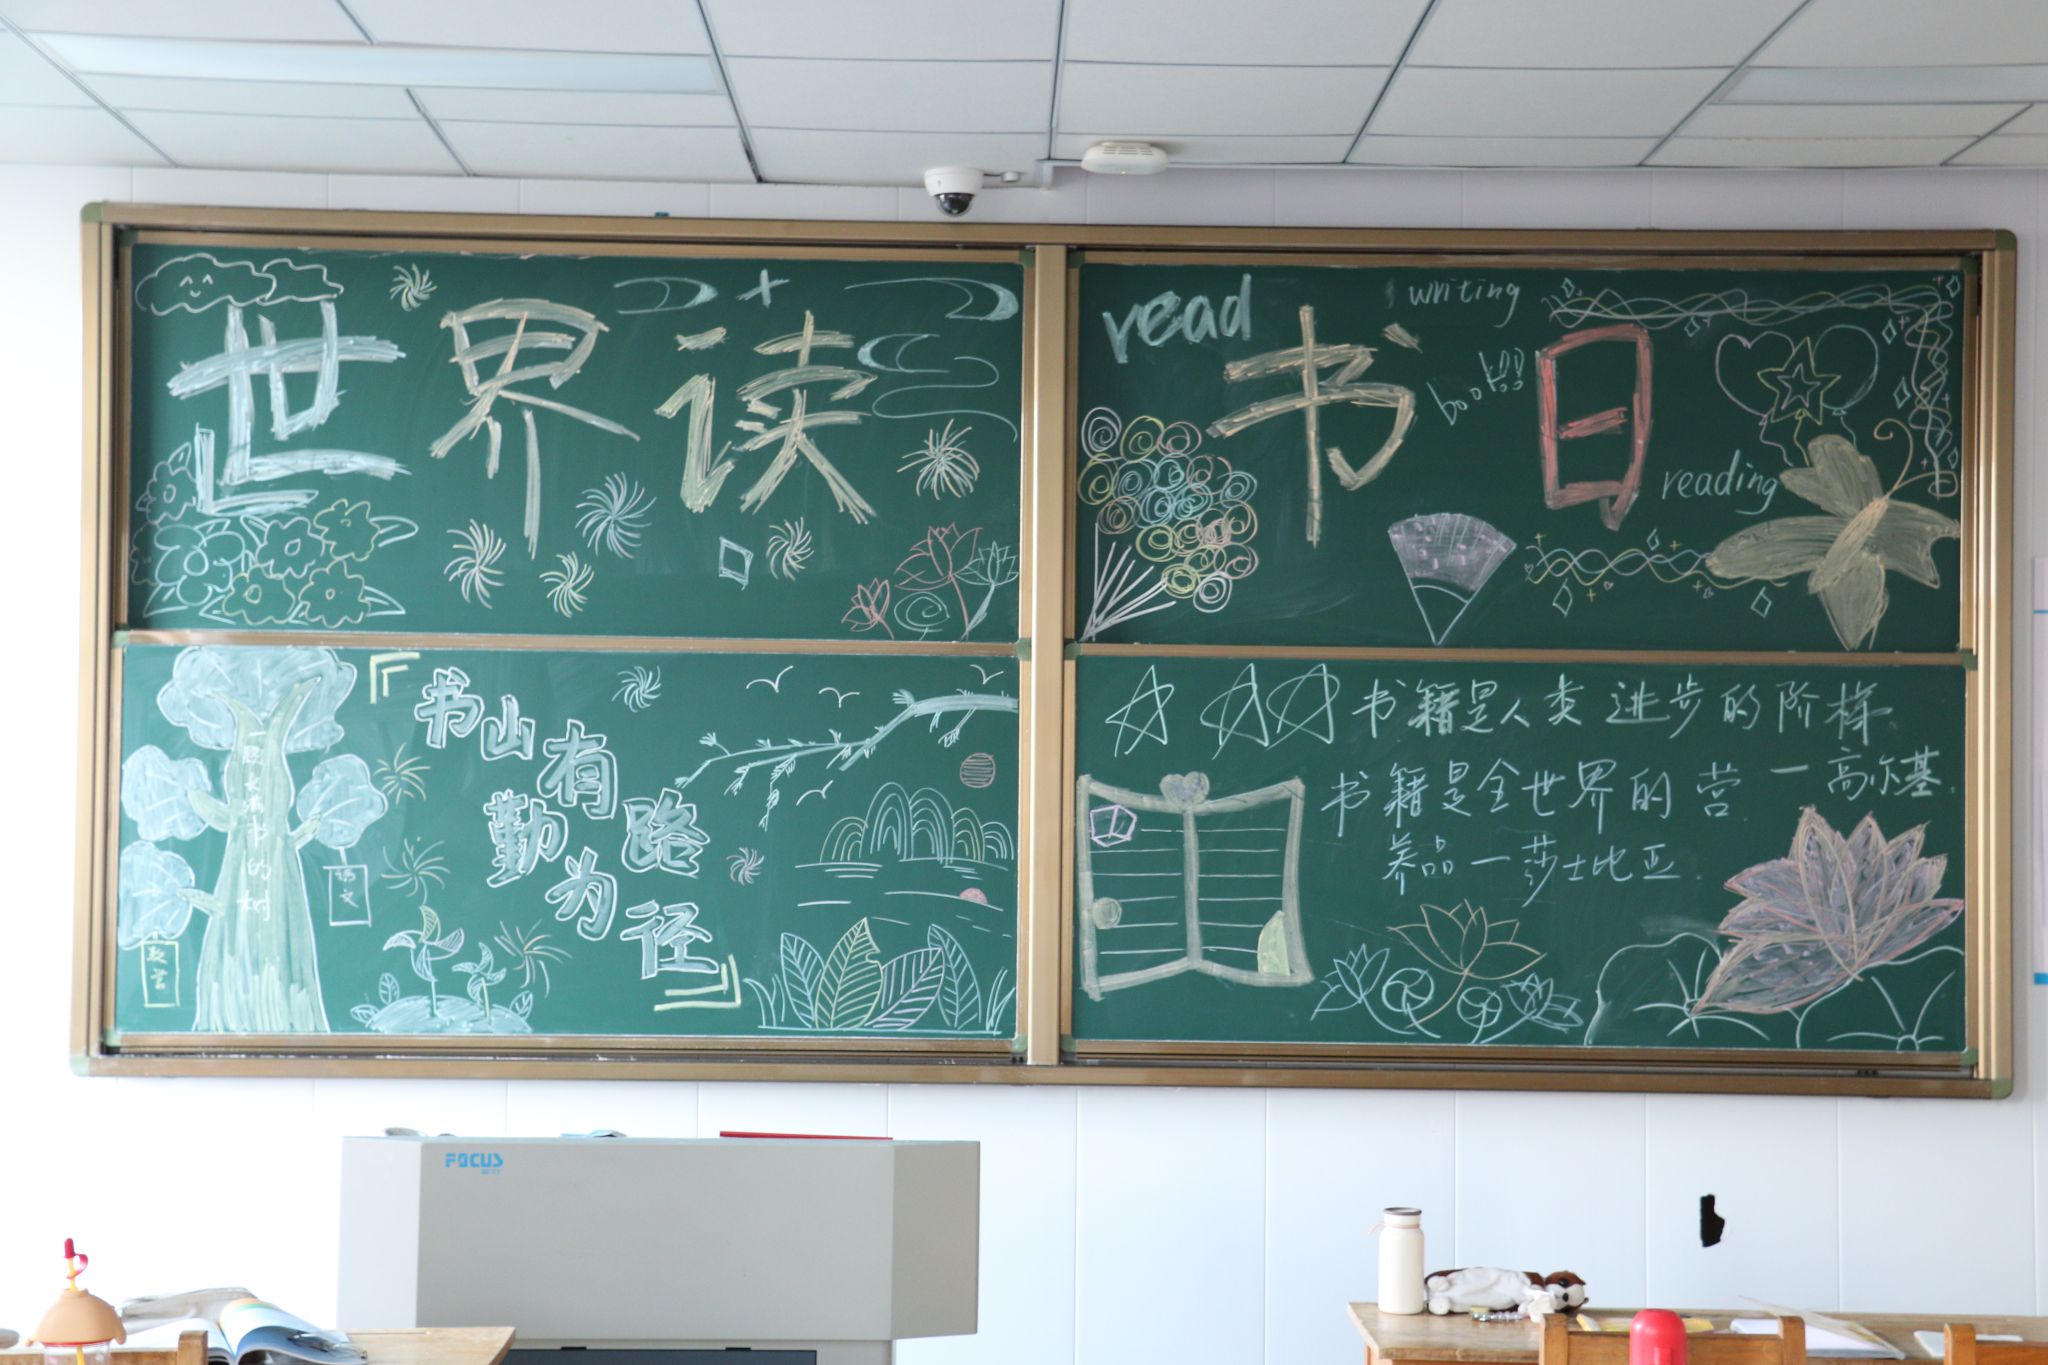 世界读书日
read
writing
book!!!
reading
『书山有路
勤为径』
一颗长满书的树
语文
数学
书籍是人类进步的阶梯
一高尔基
书籍是全世界的营
养品一莎士比亚.
FOCUS